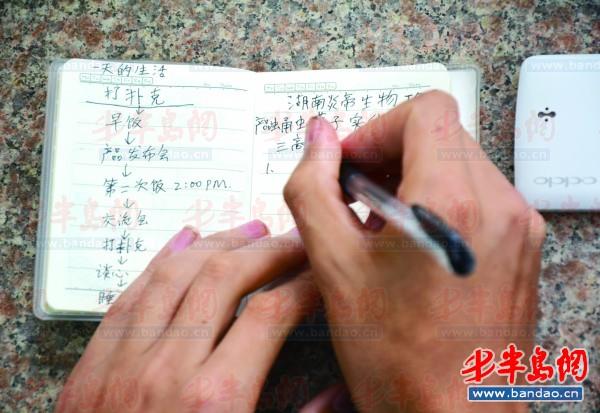 一天的生活
打扑克
早饭
产品发布会
第二次饭 2:00PM.
交流会
打扑克
谈心
睡
湖南炎帝生物
三高
1.
oppo
半岛网
www.bandao.cn